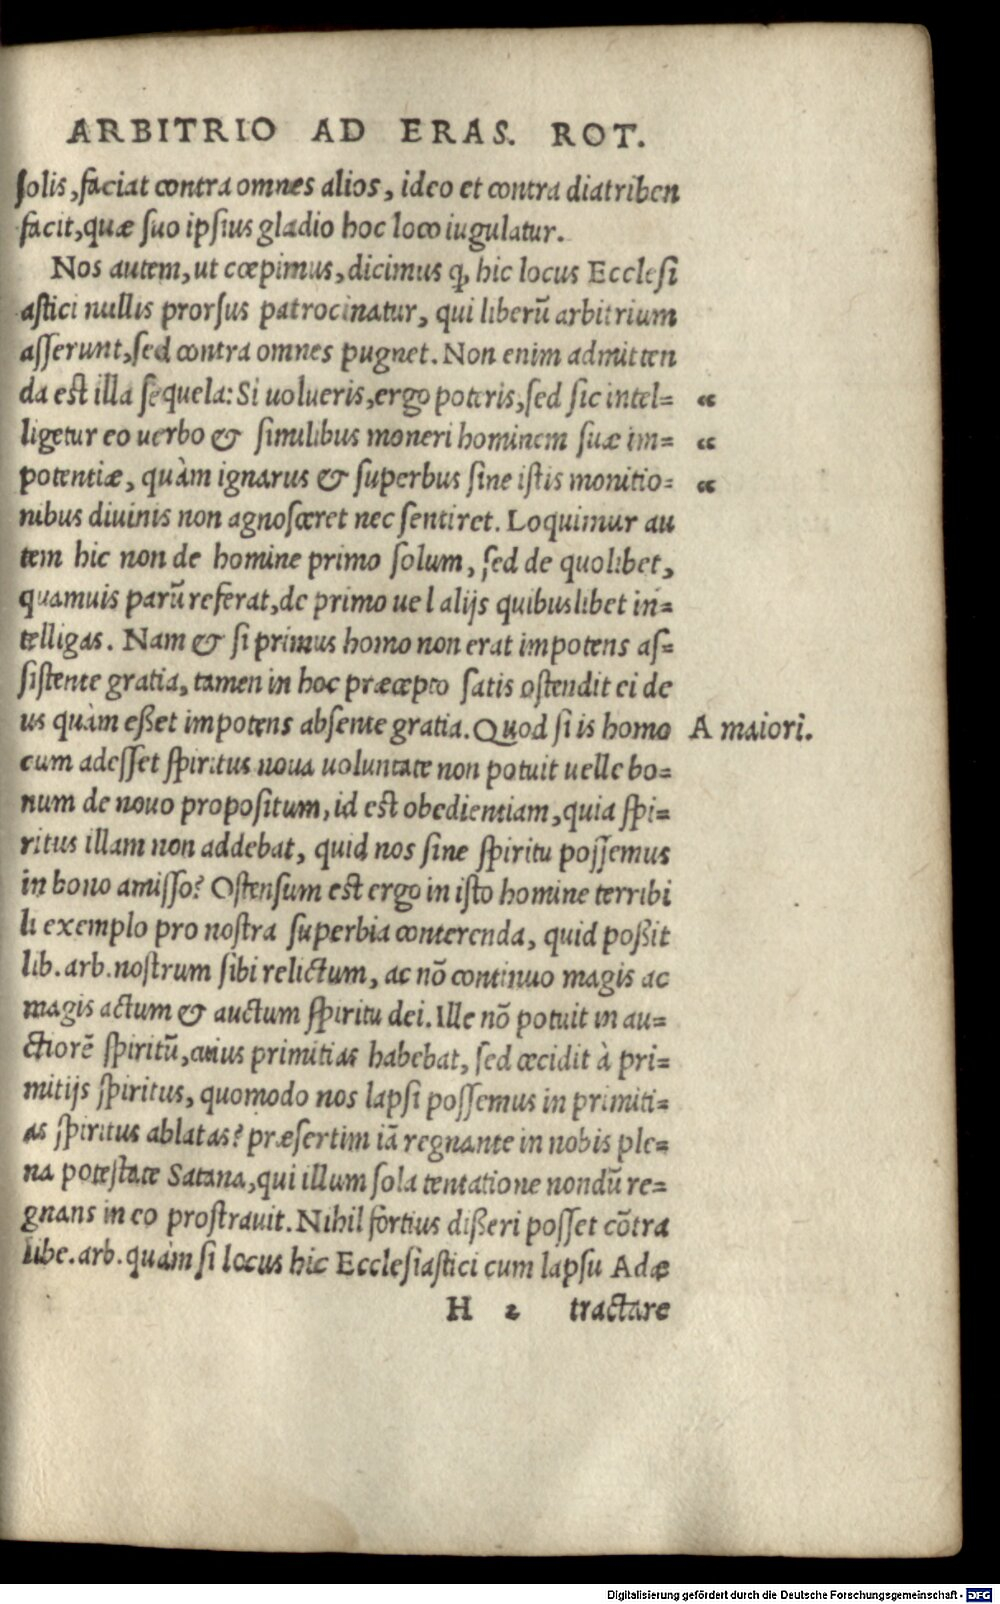 ARBITRIO AD ERAS. ROT.
solis, faciat contra omnes alios, ideo et contra diatriben
facit, quæ suo ipsius gladio hoc loco iugulatur.
Nos autem, ut cœpimus, dicimus ꝙ hic locus Ecclesi
astici nullis prorsus patrocinatur, qui liberū arbitrium
asserunt, sed contra omnes pugnet. Non enim admitten
da est illa sequela: Si uolueris, ergo poteris, sed sic intel= “
ligetur eo uerbo & similibus moneri hominem suæ im= “
potentiæ, quàm ignarus & superbus sine istis monitio= “
nibus diuinis non agnosceret nec sentiret. Loquimur au
tem hic non de homine primo solum, sed de quolibet,
quamuis parū referat, de primo uel alijs quibuslibet in=
telligas. Nam & si primus homo non erat impotens as=
sistente gratia, tamen in hoc præcepto satis ostendit ei de
us quàm eßet impotens absente gratia. Quod si is homo A maiori.
cum adesset spiritus noua uoluntate non potuit uelle bo=
num de nouo propositum, id est obedientiam, quia spi=
ritus illam non addebat, quid nos sine spiritu possemus
in bono amisso? Ostensum est ergo in isto homine terribi
li exemplo pro nostra superbia conterenda, quid poßit
lib. arb. nostrum sibi relictum, ac nō continuo magis ac
magis actum & auctum spiritu dei. Ille nō potuit in au=
ctiorē spiritū, cuius primitias habebat, sed cecidit à pri=
mitijs spiritus, quomodo nos lapsi possemus in primiti=
as spiritus ablatas? præsertim iā regnante in nobis ple=
na potestate Satana, qui illum sola tentatione nondū re=
gnans in eo prostrauit. Nihil fortius dißeri posset cōtra
libe. arb. quàm si locus hic Ecclesiastici cum lapsu Adæ
H 2 tractare
Digitalisierung gefördert durch die Deutsche Forschungsgemeinschaft - DFG